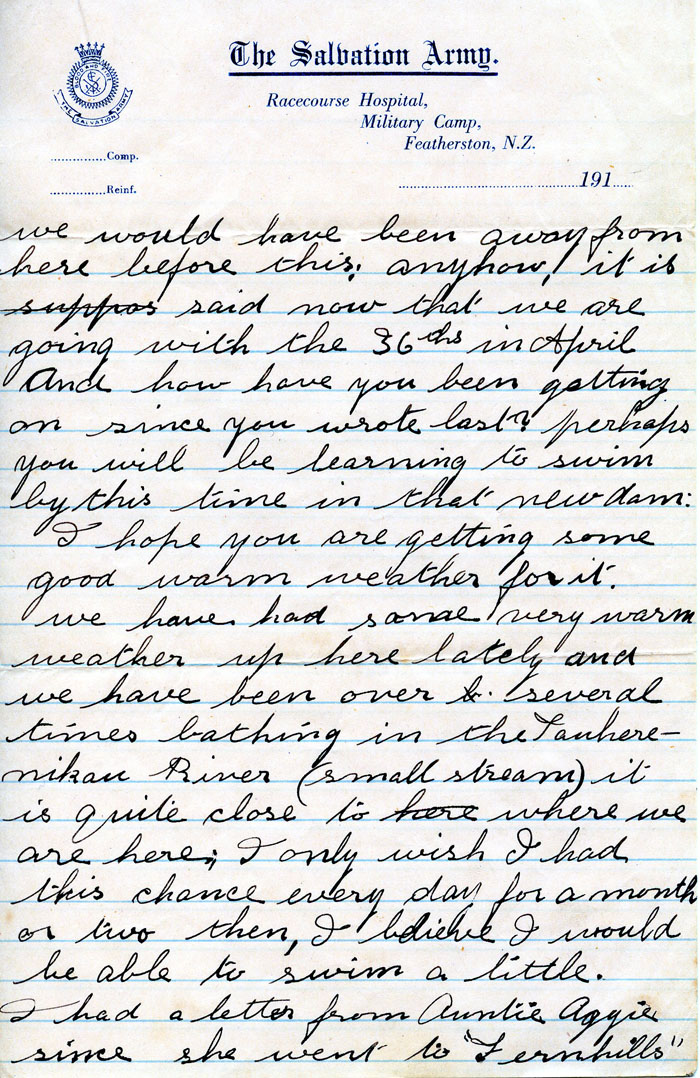 The Salvation Army.
Racecourse Hospital,
Military Camp,
Featherston, N.Z.
BLOOD AND FIRE
THE SALVATION ARMY
..............Comp.
..............Reinf.
..............191.....
we would have been away from
here before this; anyhow, it is
suppos said now that we are
going with the 36ths in April
And how have you been getting
on since you wrote last? perhaps
you will be learning to swim
by this time in that new dam:
I hope you are getting some
good warm weather for it.
we have had some very warm
weather up here lately and
we have been over several
times bathing in the Tauhere-
nikau River (small stream) it
is quite close to here where we
are here; I only wish I had
this chance every day for a month
or two then, I believe I would
be able to swim a little.
I had a letter from Auntie Aggie
since she went to "Fernhills"